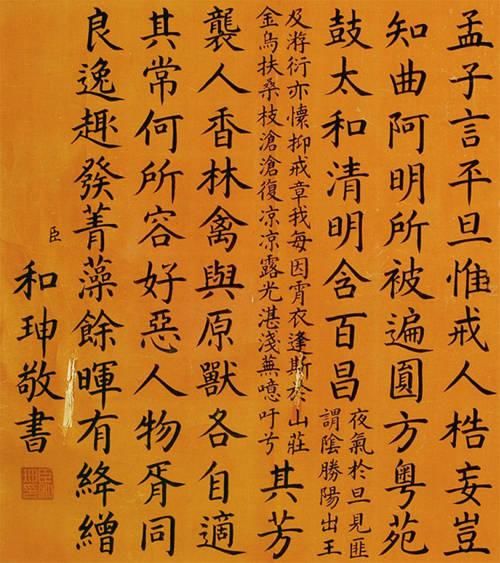 孟子言平旦惟戒人梏妄豈
知曲阿明所被遍圓方粤苑
鼓太和清明含百昌
夜氣於旦見匪
謂陰勝陽出王
及游衍亦懷抑戒章我每因宵衣逢斯於山莊
金烏扶桑枝滄滄復凉凉露光湛淺蕪噫吁兮
其芳
襲人香林禽與原獸各自適
其常何所容好惡人物胥同
良逸趣發菁藻餘暉有絳繒
臣和珅敬書